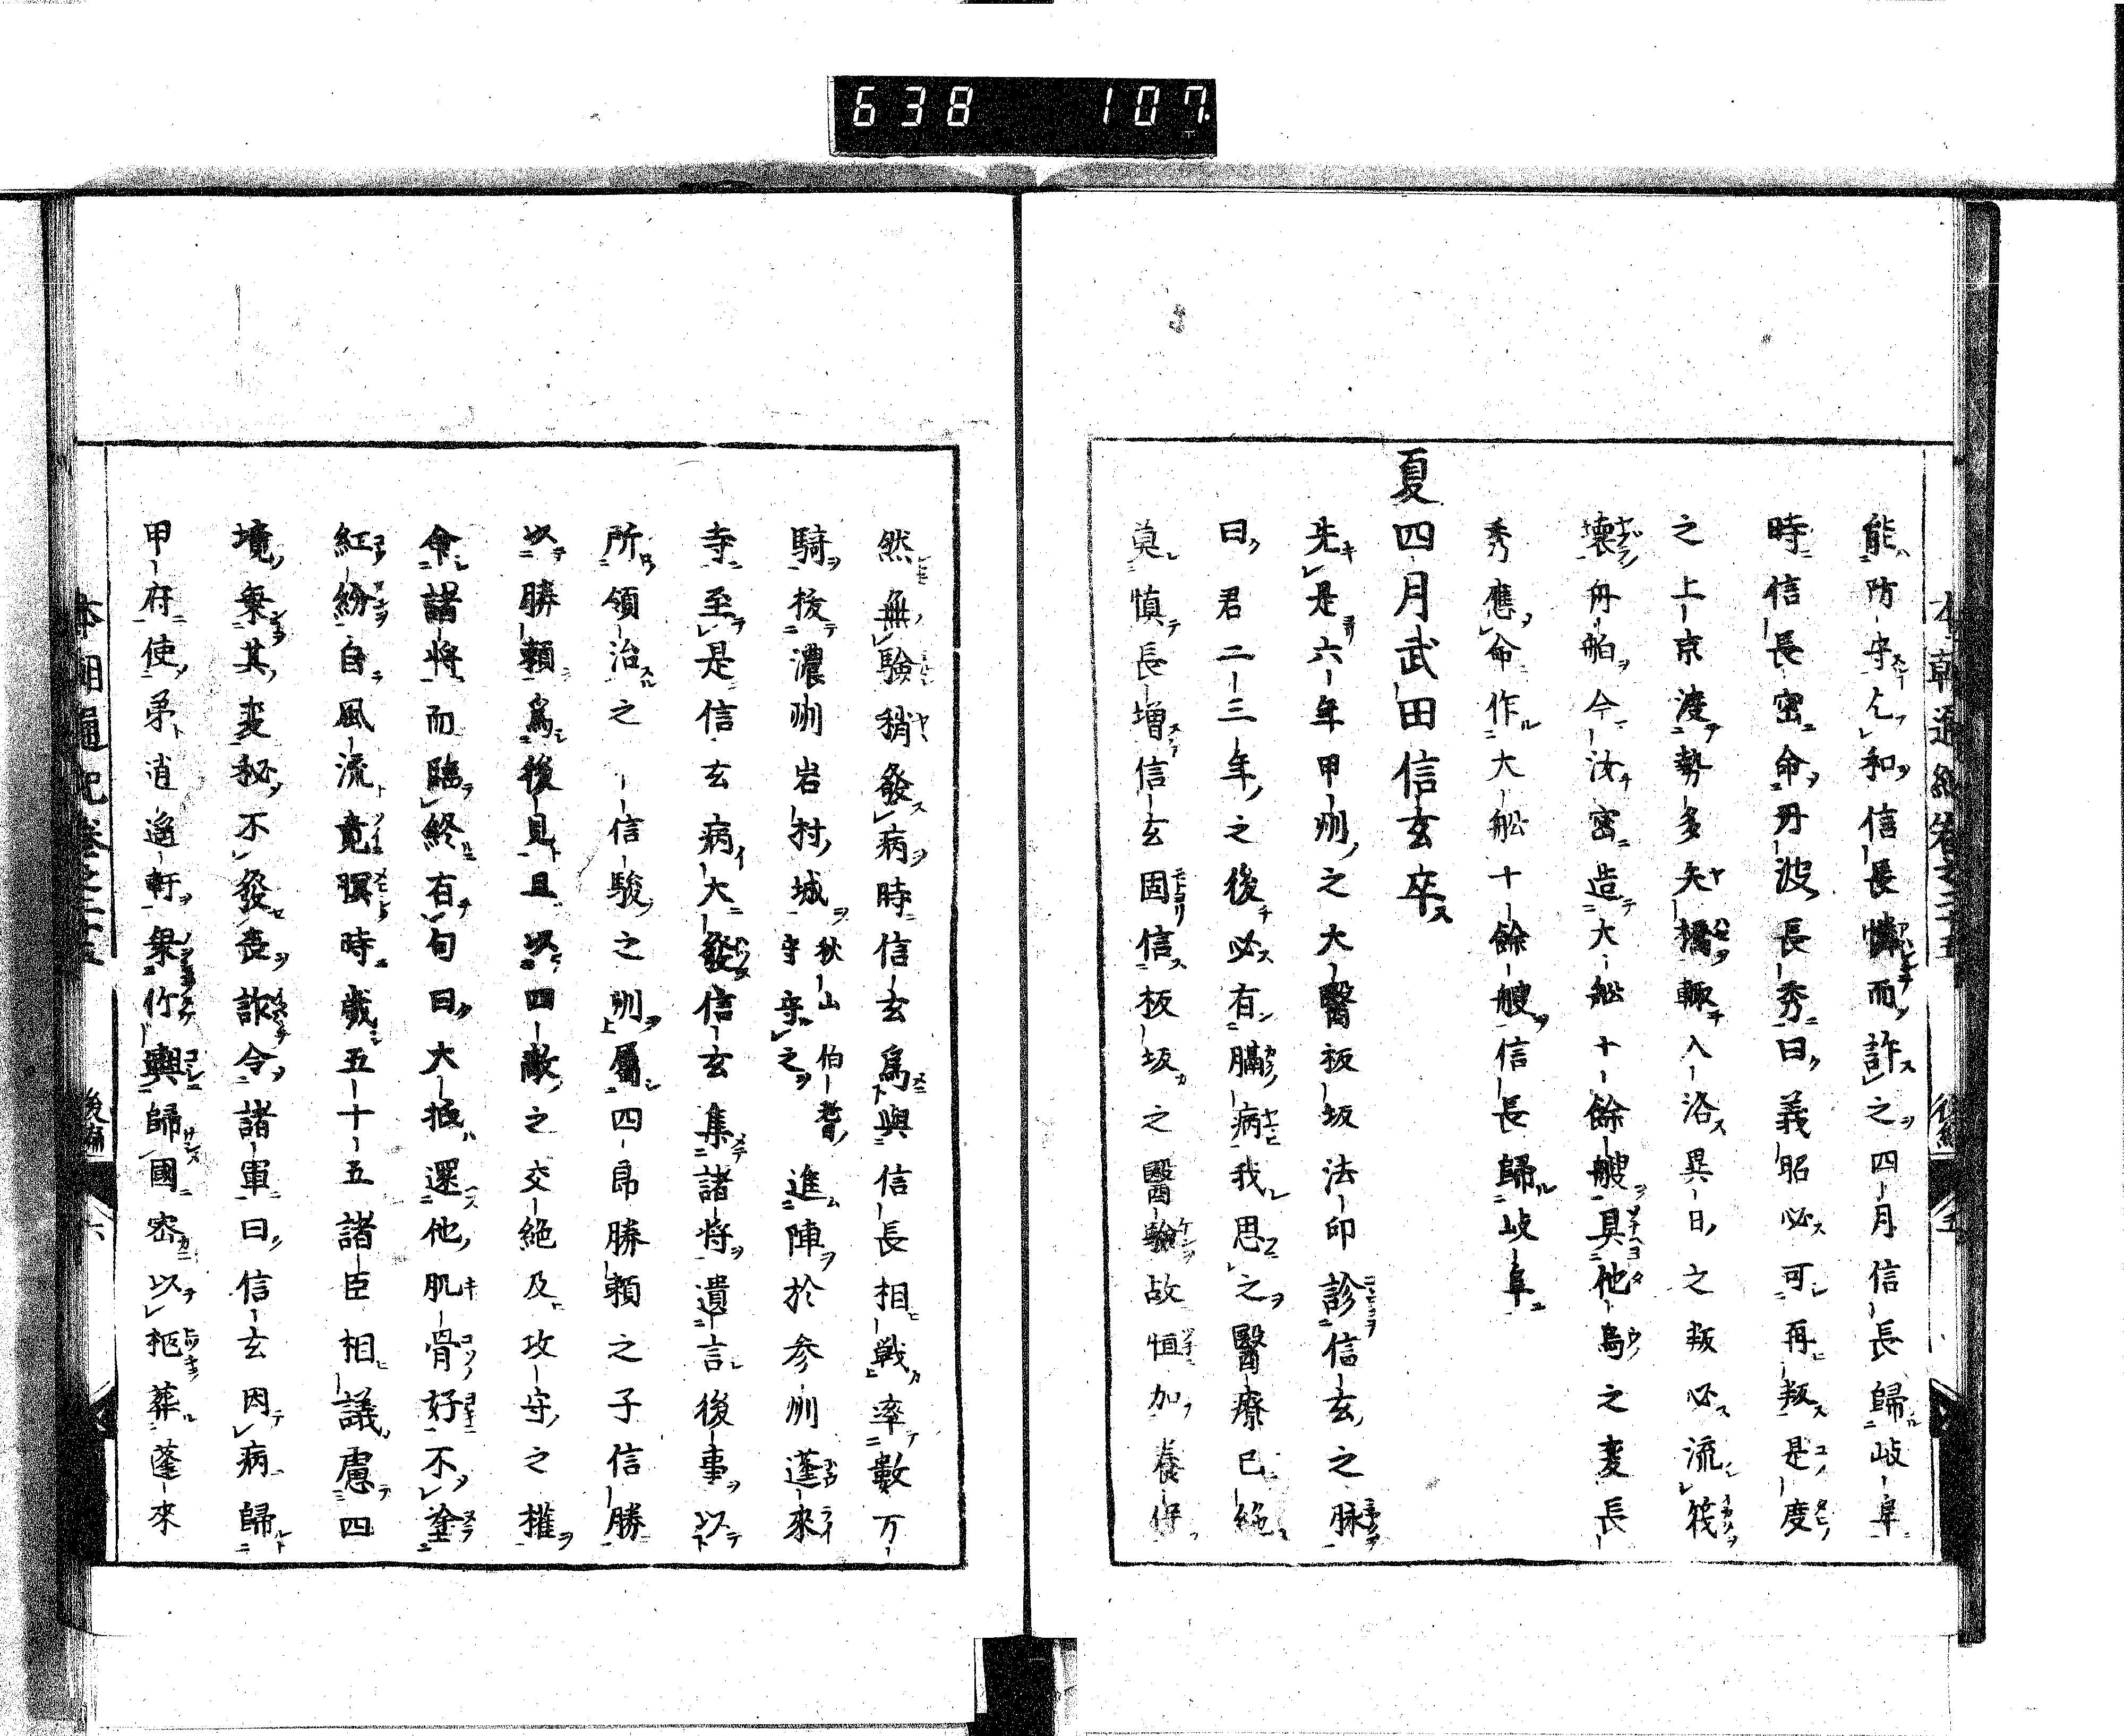 638 107
能防守乞和信長憐而許之四月信長歸岐阜
時信長密命丹波長秀曰義昭必可再叛是度
之上京渡勢多矢橋輙入洛異日之叛必流筏
壊舟舶今汝密造大舩十餘艘具他島之変長
秀應命作大舩十餘艘信長歸岐阜
夏四月武田信玄卒
先是六年甲州之大醫板坂法印診信玄之脉
曰君二三年之後必有膈病我思之醫療已絶
莫慎長増信玄固信板坂之醫驗故恒加養保
本朝通紀巻之二十五 後編 五
然無驗稍發病時信玄爲與信長相戦率數万
騎援濃州岩村城秋山伯耆守守之進陣於参州蓬來
寺至是信玄病大發信玄集諸將遺言後事以
所領治之信駿之州屬四郎勝頼之子信勝
以勝頼爲後見且以四敵之交絶及攻守之權
命諸將而臨終有句曰大抵還他肌骨好不塗
紅紛自風流竟瞑時歳五十五諸臣相議慮四
境乗其変秘不發喪詐令諸軍曰信玄因病歸
甲府使弟逍遥軒乗竹輿歸國密以柩葬蓬來
本朝通記巻之二十五 後編 六